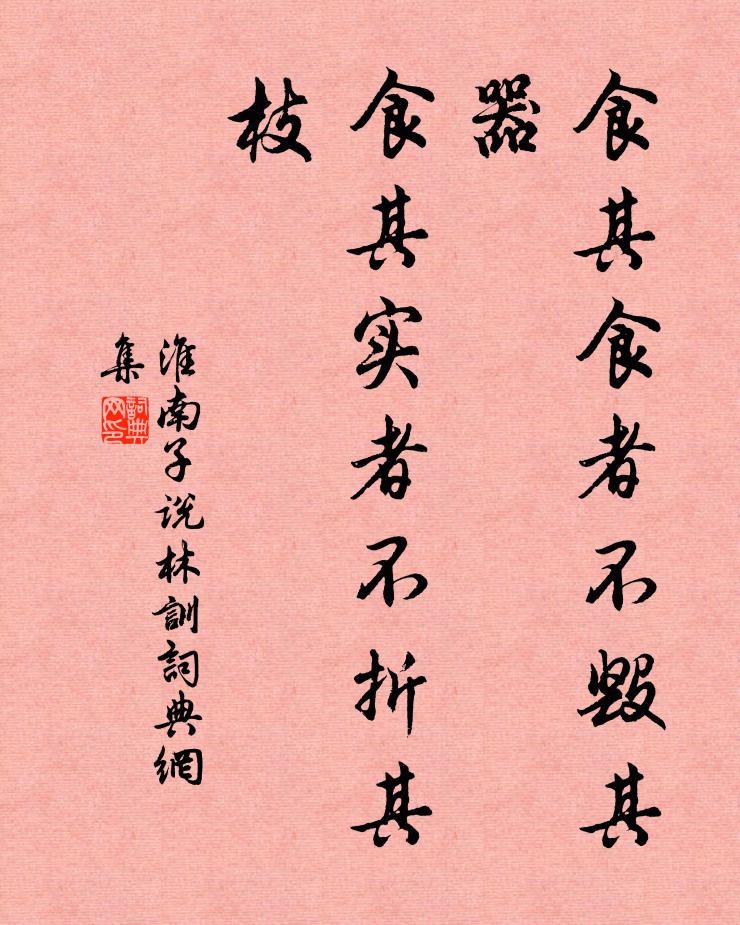 食其食者不毁其
器
食其实者不折其
枝
淮南子说林訓詞典網
集
詞典
网印